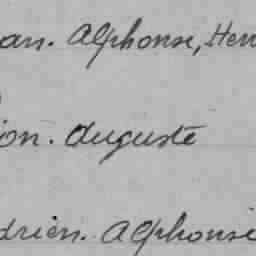 an. Alphonse, Hen
ion. Auguste
drien. Alphonse